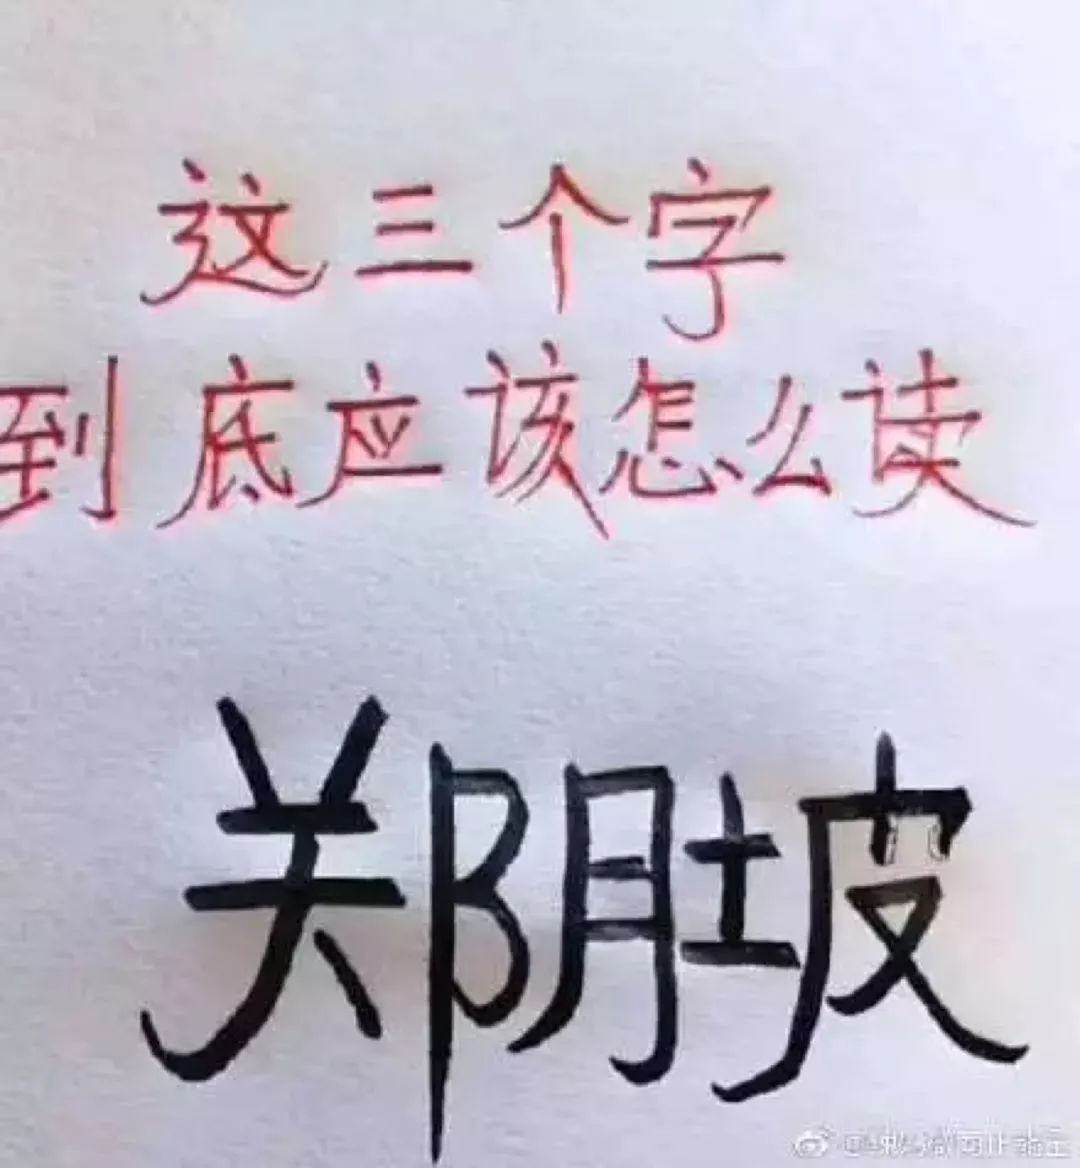 这三个字
到底应该怎么读
郑阴坡